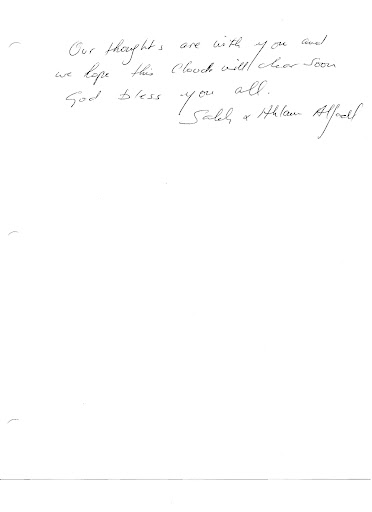 Our thoughts are with you and
we hope this Cloud will clear soon
God bless you all.
Saleh & Ahlam